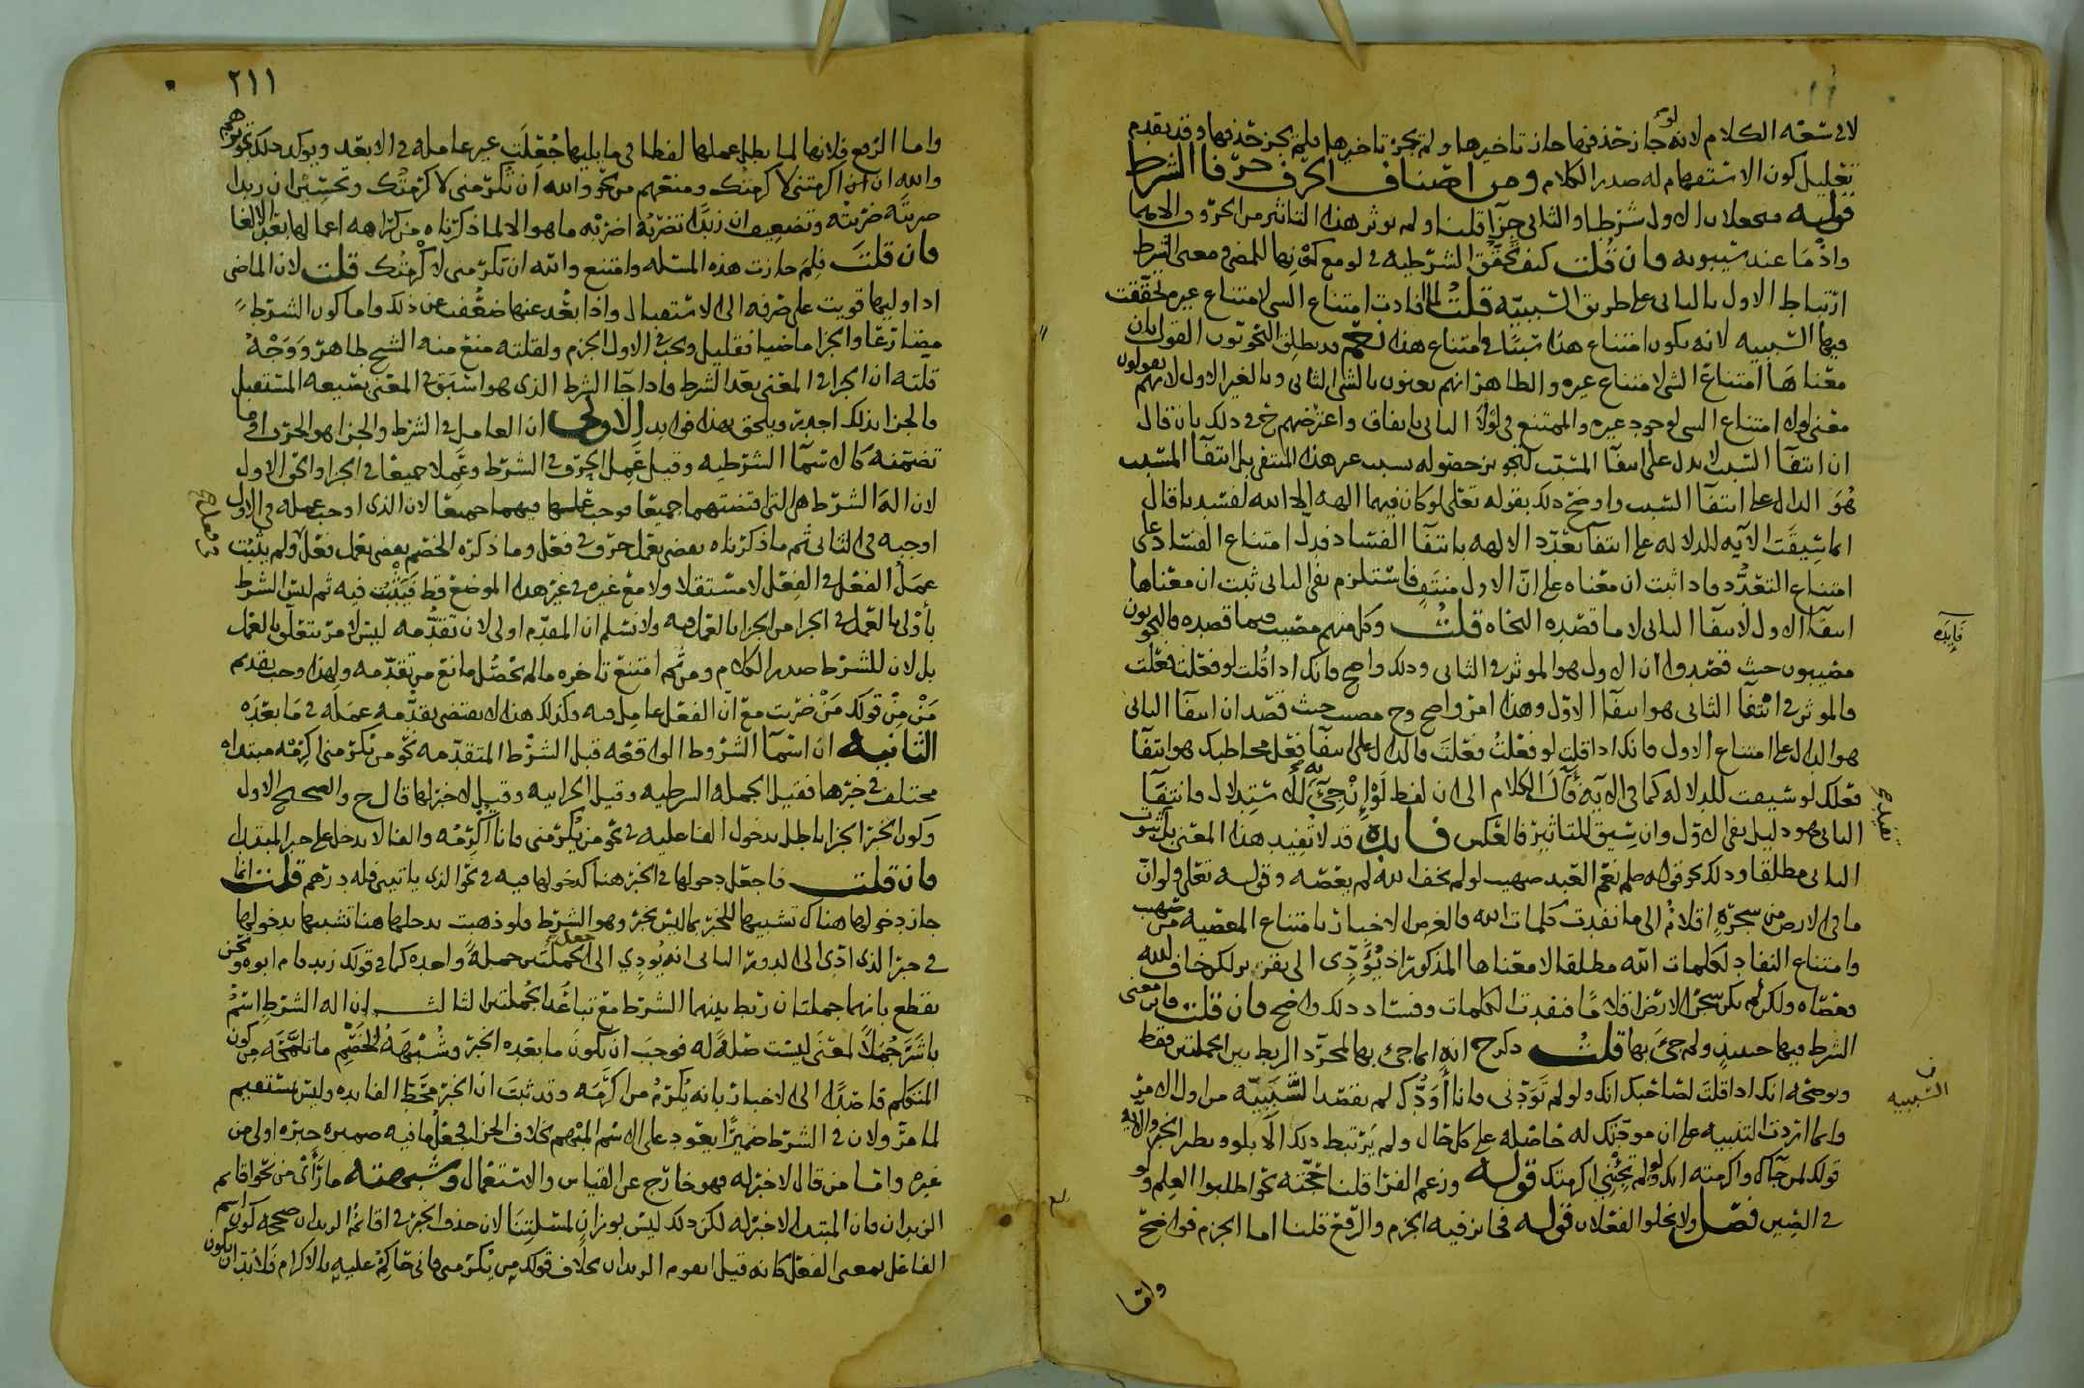 لا في سعة الكلام لانه لو جاز حذفها جاز تاخيرها ولم يجز تاخيرها فلم يجز حذفها وقد تقدم
تعليل كون الاستفهام له صدر الكلام ومن اصناف الحرف حرفا الشرط
قوله فيجعلان الاول شرطا والثاني جزآ قلنا ولم يوثر هذا التاثير من الحروف الا هما
واذما عند سيبويه فان قلت كيف تحقق الشرطيه في لو مع كونها للمضي ومعنى الشرط
ارتباط الاول بالثاني على طريق السببيه قلت لما افادت امتناع الشي لامتناع غيره تحققت
فيها السببيه لانه يكون امتناع هذا سببا في امتناع هذا نعم قد يطلق النحويون القول بان
معناها امتناع الشي لامتناع غيره والظاهر انهم يعنون بالشي الثاني وبالغير الاول لانهم يقولون
معنى لولا امتناع الشي لوجود غيره والممتنع في لولا الثاني باتفاق واعترضهم ح في ذلك بان قال
ان انتفآ السبب لا يدل على انتفا المسبب لتجويز حصوله بسبب غير هذا المنتفي بل انتفآ المسبب
هو الدال على انتفآ السبب واوضح ذلك بقوله تعلى لو كان فيهما الهه الا الله لفسدتا قال
انما سيقت الآيه للدلاله على انتفآ تعدد الالهه بانتفآ الفساد فدل امتناع الفساد على
امتناع التعدد فاذا ثبت ان معناه على ان الاول منتف فاستلزم نفي الثاني ثبت ان معناها
انتفآ الاول لانتفآ الثاني لا ما قصده النحاه قلت وكل منهم مصيب فيما قصده فالنحويون
مصيبون حيث قصدوا ان الاول هو الموثر في الثاني وذلك واضح فانك اذا قلت لو فعلت فعلت
فالموثر في انتفآ الثاني هو انتفآ الاول وهذا امر واضح وح مصيب حيث قصد ان انتفآ الثاني
هو الدال على امتناع الاول فانك اذا قلت لو فعلت فعلت فالدال على انتفآ فعل مخاطبك هو انتفآ
فعلك لو سيقت للدلاله كما في الايه فآل الكلام الى ان لفظ لو ان جيء به للاستدلال فانتفآ
الثاني هو دليل نفي الاول وان سيق للتاثير فالعكس فايده قد لا تفيد هذا المعنى بل ثبوت
الثاني مطلقا وذلك نحو قوله صلعم نعم العبد صهيب لو لم يخف الله لم يعصه وقوله تعلى ولو ان
ما في الارض من شجره اقلام الى ما نفدت كلمات الله فالغرض الاخبار بامتناع المعصيه من صهيب
وامتناع النفاد لكلمات الله مطلقا لا معناها المذكور اذ يؤدي الى تقرير لكن خاف الله
فعصاه ولكن لم يكن شجر الارض اقلاما فنفدت الكلمات وفساد ذلك واضح فان قلت فاين معنى
الشرط فيها حينيذ ولم جيء بها قلت ذكر ح انه انما جيء بها لمجرد الربط بين الجملتين فقط
ويوضحه انك اذا قلت لصاحبك انك ولو لم تودني فانا أودك لم تقصد السببيه من اول الامر
وانما اردت التنبيه على ان مودتك له حاصله على كل حال ولم يرتبط ذلك الا بلو ونظير الخبر والايه
قولك لمن جآك واكرمته انك لو لم تجئني اكرمتك قوله وزعم الفرآ قلنا حجته نحو اطلبوا العلم ولو
في الصين فصل ولا يخلوا الفعلان قوله فجائز فيه الجزم والرفع قلنا اما الجزم فواضح
واما
فايده
السببيه
٢١١
واما الرفع فلانها لما بطل عملها لفظا في ما يليها جعلت غير عامله في الابعد ويوكد ذلك تجويزهم
والله ان اكرمتني لاكرمتك ومنعهم من نحو والله ان تكرمني لاكرمتك وتحسين ان زيدا
ضربته ضربته وتضعيف ان زيدا تضربه اضربه ما هو الا لما ذكرناه من كراهه اعمالها بعد الالغا
فان قلت فلم جازت هذه المسله وامتنع والله ان تكرمني لاكرمتك قلت لان الماضي
اذا وليها قويت على صرفه الى الاستقبال واذا بعد عنها ضعفت عن ذلك واما كون الشرط
مضارعا والجزا ماضيا فقليل ويجب في الاول الجزم ولقلته منع منه الشيخ طاهر ووجه
قلته ان الجزا في المعنى بعد الشرط فاذا جآ الشرط الذي هو اسبق في المعنى بصيغه المستقبل
فالجزا بذلك اجدر ويلحق بهذا فوايد الاولى ان العامل في الشرط والجزا هو الحرف او ما
تضمنه كالاسمآ الشرطيه وقيل عمل الحرف في الشرط وعملا جميعا في الجزا والحق الاول
لان اله الشرط هي التي اقتضتهما جميعا فوجب عملها فيهما جميعا لان الذي اوجب عمله في الاول
اوجبه في الثاني ثم ما ذكرناه يقضي بعمل حرف في فعل وما ذكره الخصم يقضي بعمل فعل ولم يثبت
عمل الفعل في الفعل لا مستقلا ولا مع غيره في غير هذا الموضع قط فيثبت فيه ثم ليس الشرط
بأولى بالعمل في الجزا من الجزا بالعمل فيه ولا نسلم ان المقدم اولى لان تقدمه ليس لامر يتعلق بالعمل
بل لان للشرط صدر الكلام ومن ثم امتنع تاخره ما لم يحصل مانع من تقدمه ولهذا وجب تقديم
من من قولك من ضربت مع ان الفعل عامل فيه وكذلك هذا لا يقتضي تقدمه عمله في ما بعده
الثانيه ان اسمآ الشروط الواقعه قبل الشرط المتقدمه نحو من يكرمني اكرمه مبتداه
مختلف في خبرها فقيل الجمله الشرطيه وقيل الجزاييه وقيل لا خبر لها قال ح والصحيح الاول
وكون الخبر الجزا باطل بدخول الفا عليه في نحو من يكرمني فانا أكرمه والفا لا يدخل على خبر المبتدا
فان قلت فاجعل دخولها في الخبر هنا كدخولها فيه في نحو الذي ياتيني فله درهم قلت انما
جاز دخولها هناك تشبيها للخبر بما ليس بخبر وهو الشرط فلو ذهبت تدخلها هنا تشبيها بدخولها
في خبر الذي ادى الى الدور الثاني انه يودي الى جعل الجملتين جملة واحده كما في قولك زيد قام ابوه ونحن
نقطع بانهما جملتان ربط بينهما الشرط مع تباعد الجملتين الثالث ان اله الشرط اسم
باشر جملا لمعنى ليست صلة له فوجب ان يكون ما بعده الخبر وشبهه الخصم ما تلمحه من كون
المتكلم قاصدا الى الاخبار بانه يكرم من اكرمه وقد ثبت ان الخبر محط الفايده وليس بمستقيم
لما مر ولان في الشرط ضميرا يعود على الاسم المبهم بخلاف الجزا فجعل ما فيه ضميره خبره اولى من
غيره واما من قال لا خبر له فهو خارج عن القياس والاستعمال وشبهته ما رأى من نحو اقايم
الزيدان فان المبتدا لا خبر له لكن ذلك ليس بوزان لمسلتنا لان حذف الخبر في اقائم الزيدان صححه كون اسم
الفاعل بمعنى الفعل كانه قيل ايقوم الزيدان بخلاف قولك من يكرمني فاني حاكم عليه بالاكرام فلا بد ان يكون